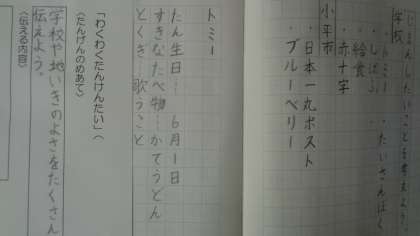 学校
・トミー
・しばふ
・たいさんぼく
・給食
・赤十字
小平市
・日本一丸ポスト
・ブルーベリー
トミー
たん生日… 6月1日
すきなたべ物…かてうどん
とくぎ 歌うこと
「わくわくたんけんたい」
〈たんけんのめあて〉
学校や地いきのよさをたくさん
伝えよう。
〈伝える内容〉